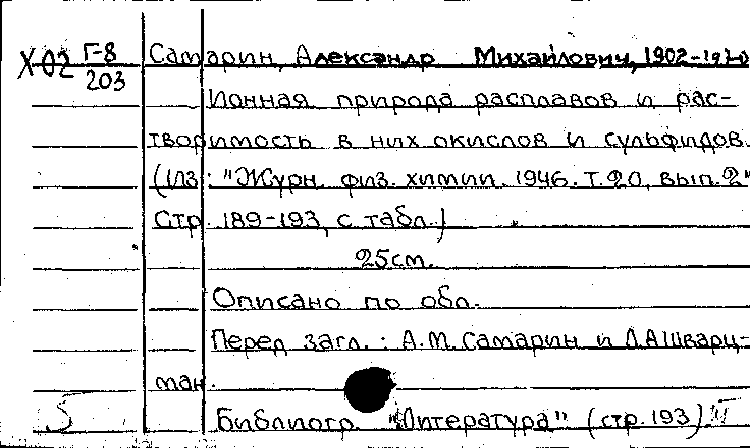 Х02 Г-8 Самарин, Александр Михайлович, 1902-1970
203
Ионная природа расплавов и рас-
творимость в них окислов и сульфидов.
(Из: "Журн. физ. химии. 1946. Т.20, вып.2"
Стр. 189-193, с табл.)
25см.
Описано по обл.
Перед загл.: А.М. Самарин и Л.А Шварц-
ман.
Библиогр. "Литература" (стр. 193)
5